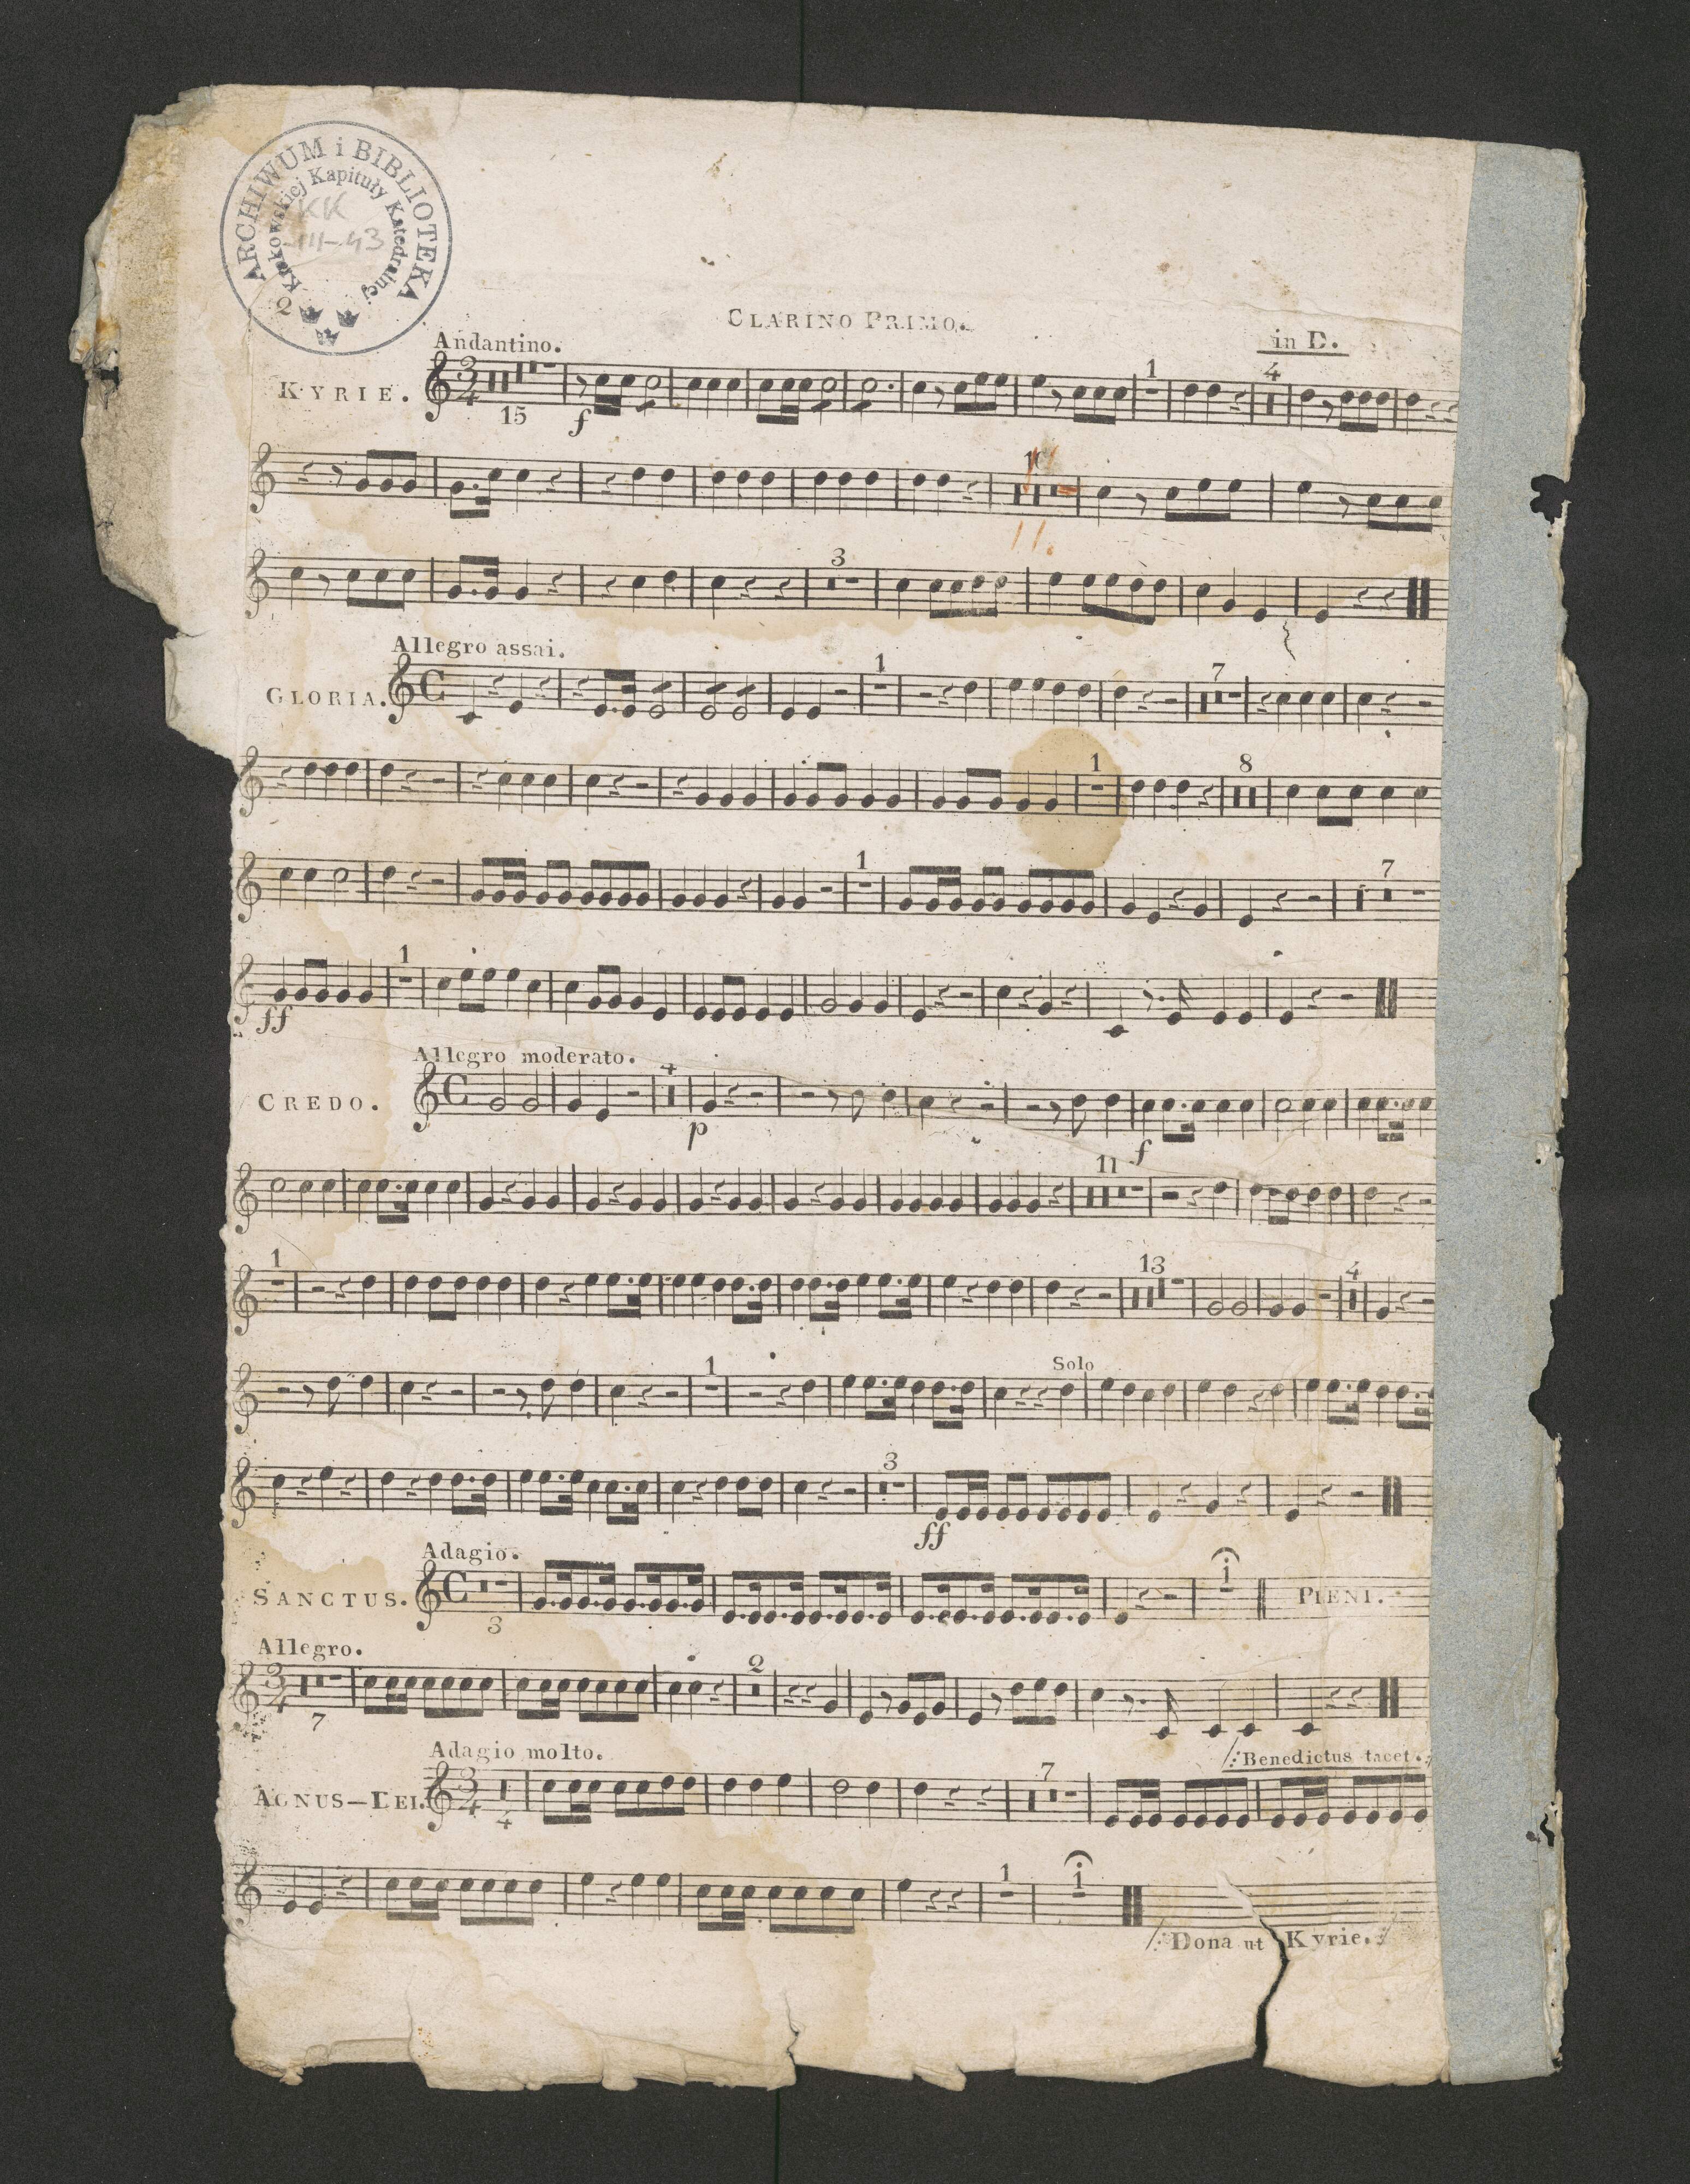 ARCHIWUM i BIBLIOTEKA
Krakowskiej Kapituły Katedralnej
KK
III-43
2
CLARINO PRIMO.
Andantino.
in D.
KYRIE.
3
4
15
f
1
4
11.
3
Allegro assai.
GLORIA.
1
7
1
8
1
7
ff
1
Allegro moderato.
CREDO.
4
p
f
11
1
13
4
1
Solo
3
ff
Adagio.
SANCTUS.
3
1
PLENI.
Allegro.
3
4
7
2
/: Benedictus tacet. :/
Adagio molto.
AGNUS-DEI.
3
4
4
7
1
1
/: Dona ut Kyrie. :/